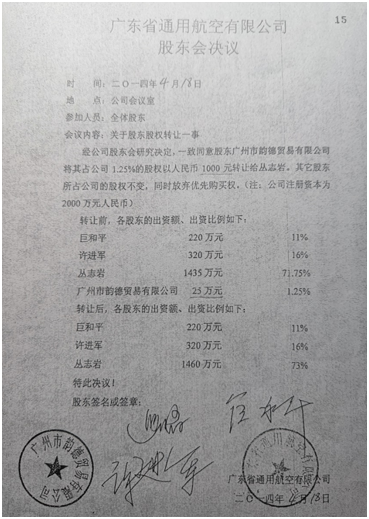 15
广东省通用航空有限公司
股东会决议
时　间：二〇一四年4月18日
地　点：公司会议室
参加人员：全体股东
会议内容：关于股东股权转让一事
经公司股东会研究决定，一致同意股东广州市韵德贸易有限公司
将其占公司 1.25%的股权以人民币 1000 元转让给丛志岩。其它股东
所占公司的股权不变，同时放弃优先购买权。（注：公司注册资本为
2000 万元人民币）
转让前，各股东的出资额、出资比例如下：
巨和平 220 万元 11%
许进军 320 万元 16%
丛志岩 1435 万元 71.75%
广州市韵德贸易有限公司 25 万元 1.25%
转让后，各股东的出资额、出资比例如下：
巨和平 220 万元 11%
许进军 320 万元 16%
丛志岩 1460 万元 73%
特此决议！
股东签名或签章：
广州市韵德贸易有限公司
广东省通用航空有限公司
广东省通用航空有限公司
二〇一四年4月18日